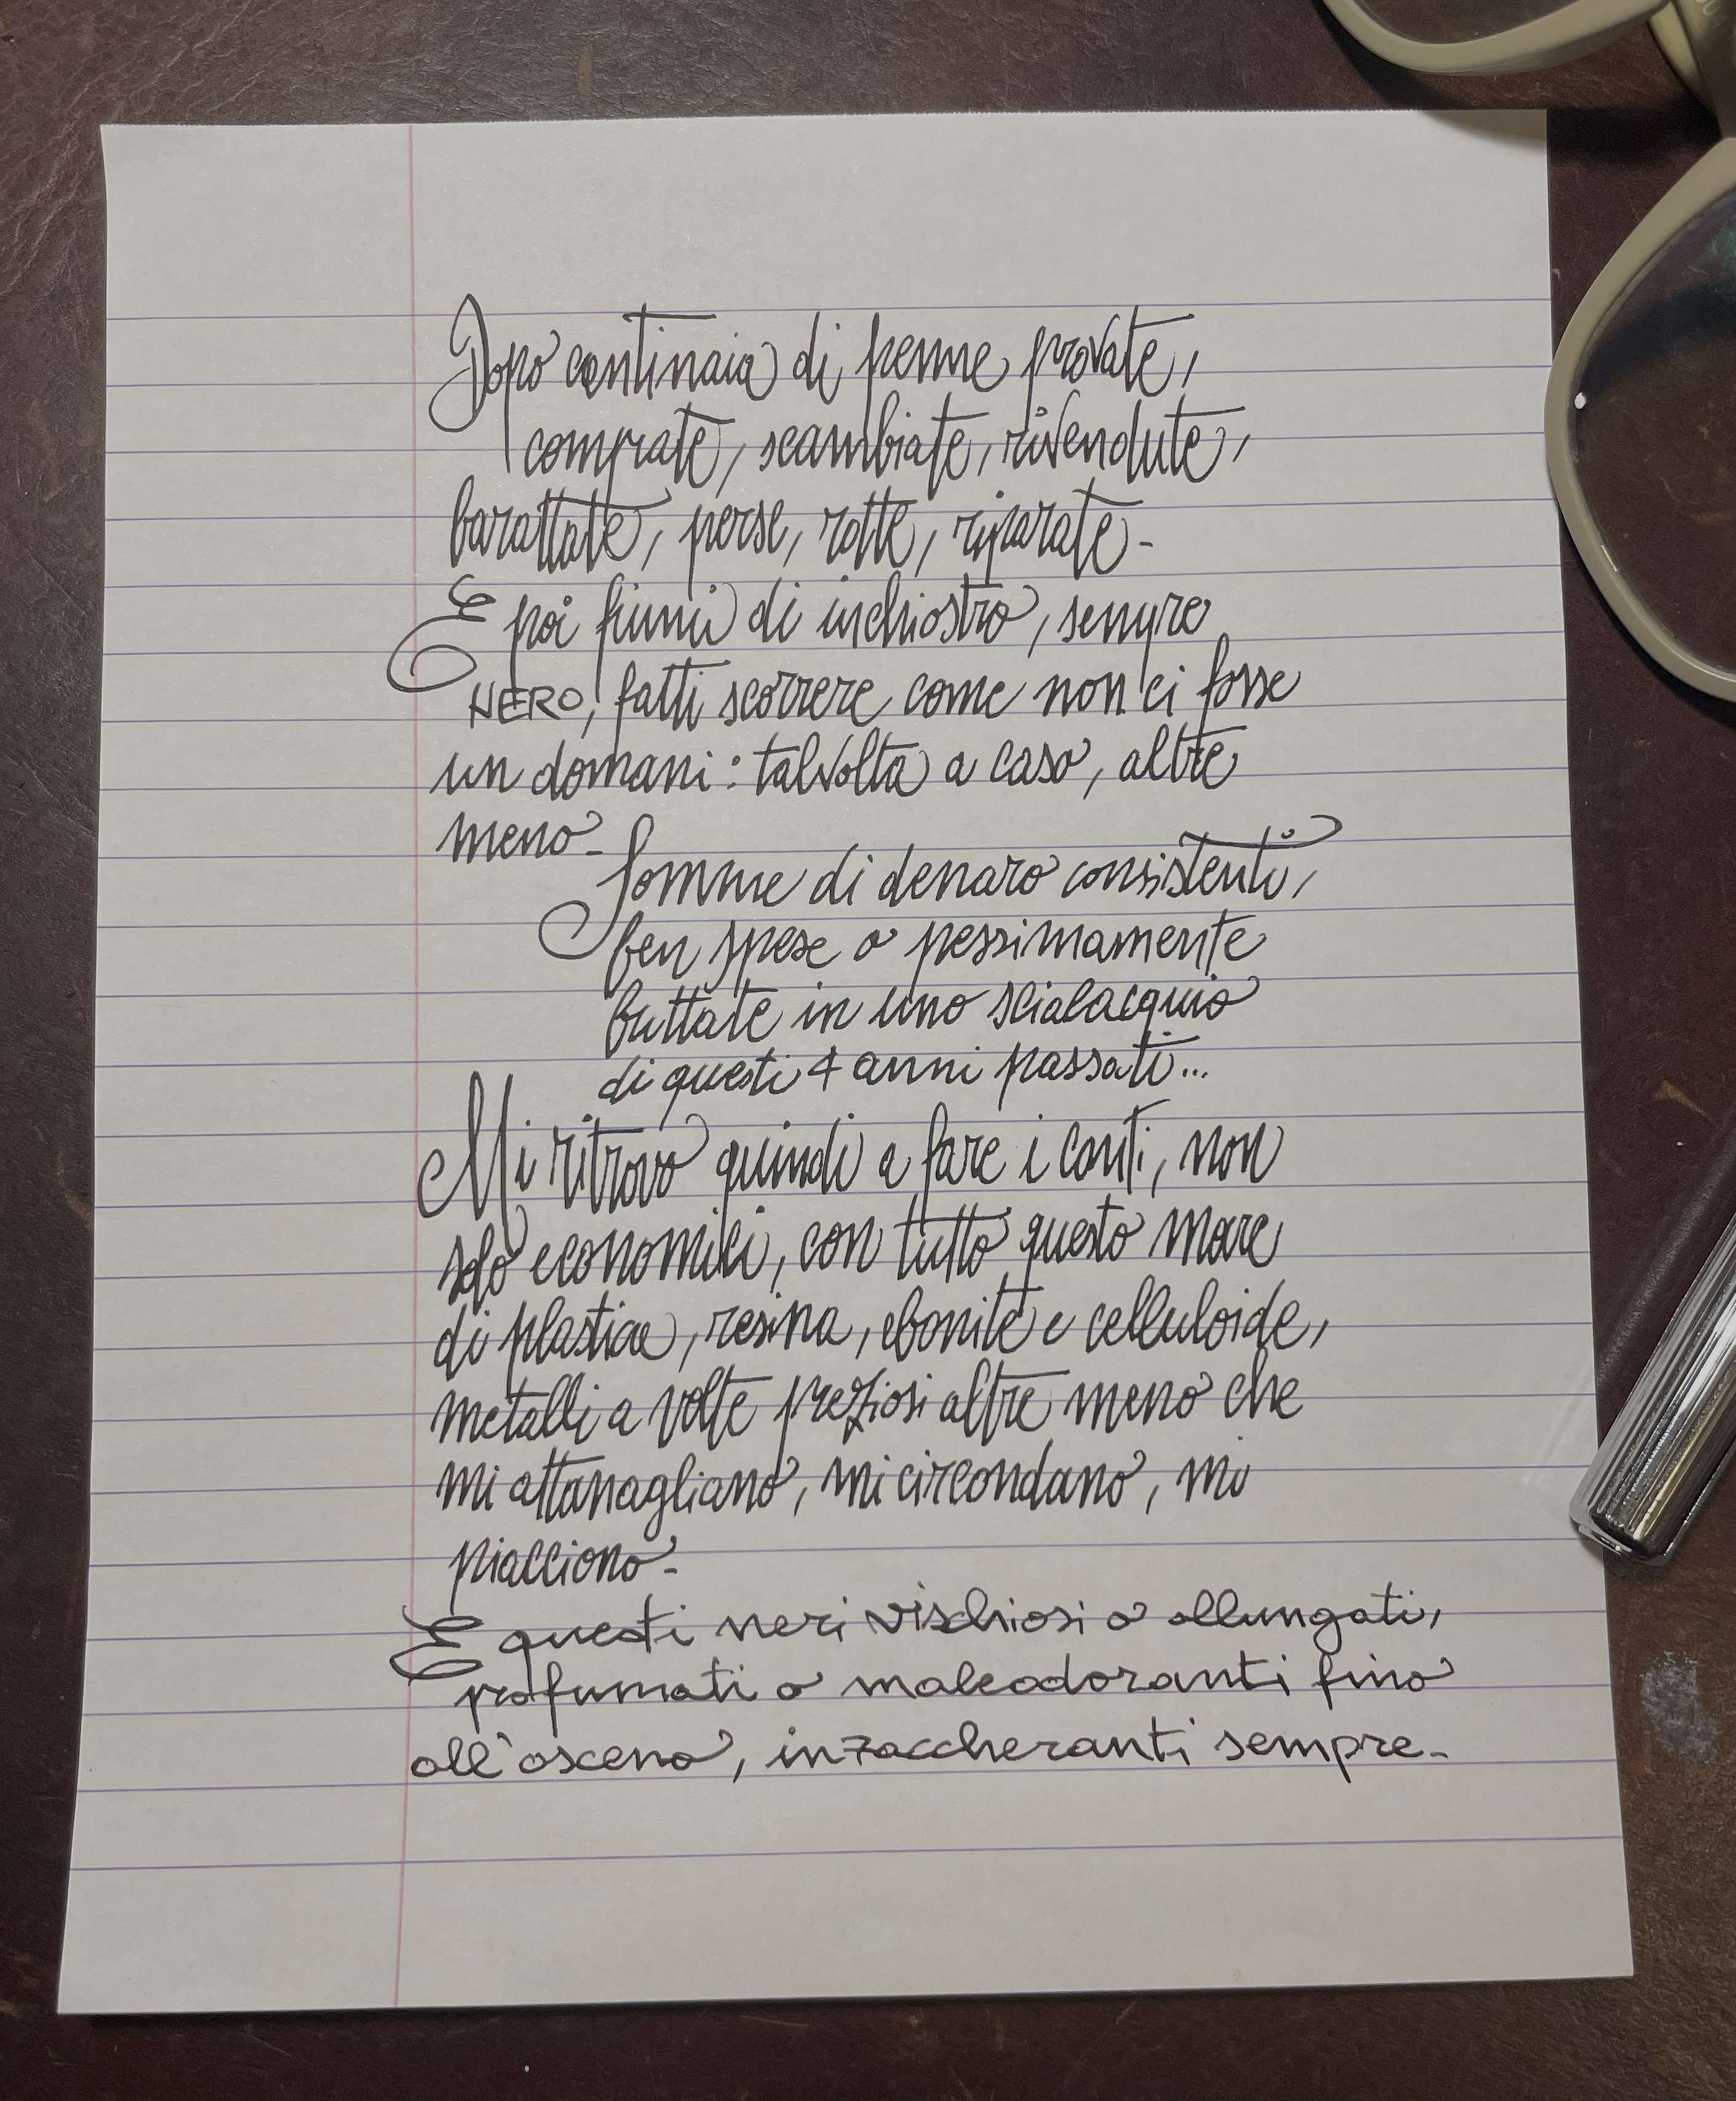 Dopo centinaia di penne provate,
comprate, scambiate, rivendute,
barattate, perse, rotte, riparate-
E poi fiumi di inchiostro, sempre
NERO, fatti scorrere come non ci fosse
un domani: talvolta a caso, altre
meno-
Somme di denaro consistenti,
ben spese o pessimamente
buttate in uno scialacquio
di questi 4 anni passati...
Mi ritrovo quindi a fare i conti, non
solo economici, con tutto questo mare
di plastica, resina, ebonite e celluloide,
metalli a volte preziosi altre meno che
mi attanagliano, mi circondano, mi
piacciono-
E questi neri vischiosi o allungati,
profumati o maleodoranti fino
all'osceno, inzaccheranti sempre-